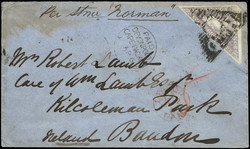 Per Stmr "Norman"
PAID
Mrs Robert Lamb
Care of Wm Lamb Esqr
Kilcoleman Park
Ireland Bandon